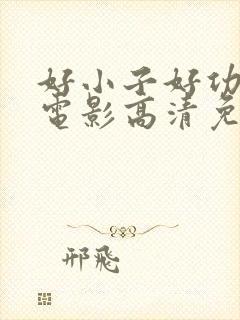 好小子好功
電影高清免
邢飛